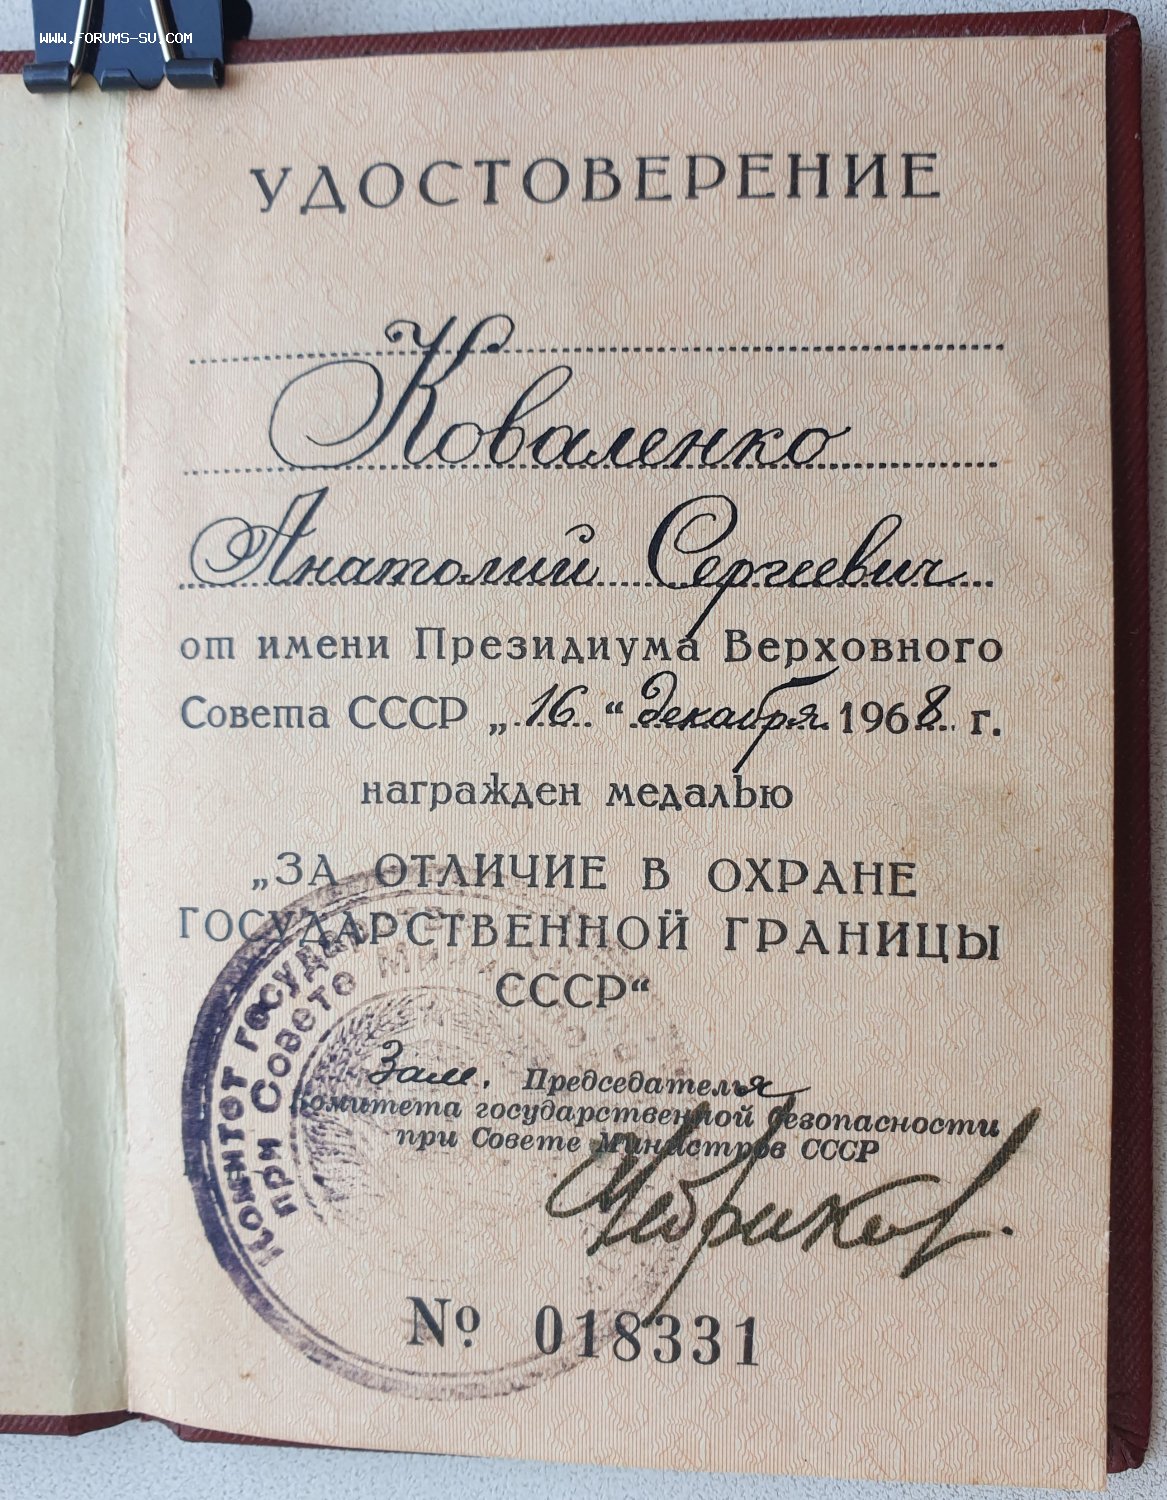 WWW.FORUMS-SU.COM
УДОСТОВЕРЕНИЕ
Коваленко
Анатолий Сергеевич
от имени Президиума Верховного
Совета СССР „16“ декабря 1968 г.
награжден медалью
„ЗА ОТЛИЧИЕ В ОХРАНЕ
ГОСУДАРСТВЕННОЙ ГРАНИЦЫ
СССР“
Зам. Председателя
Комитета государственной безопасности
при Совете Министров СССР
Комитет государ
при Совете Мин
№ 018331